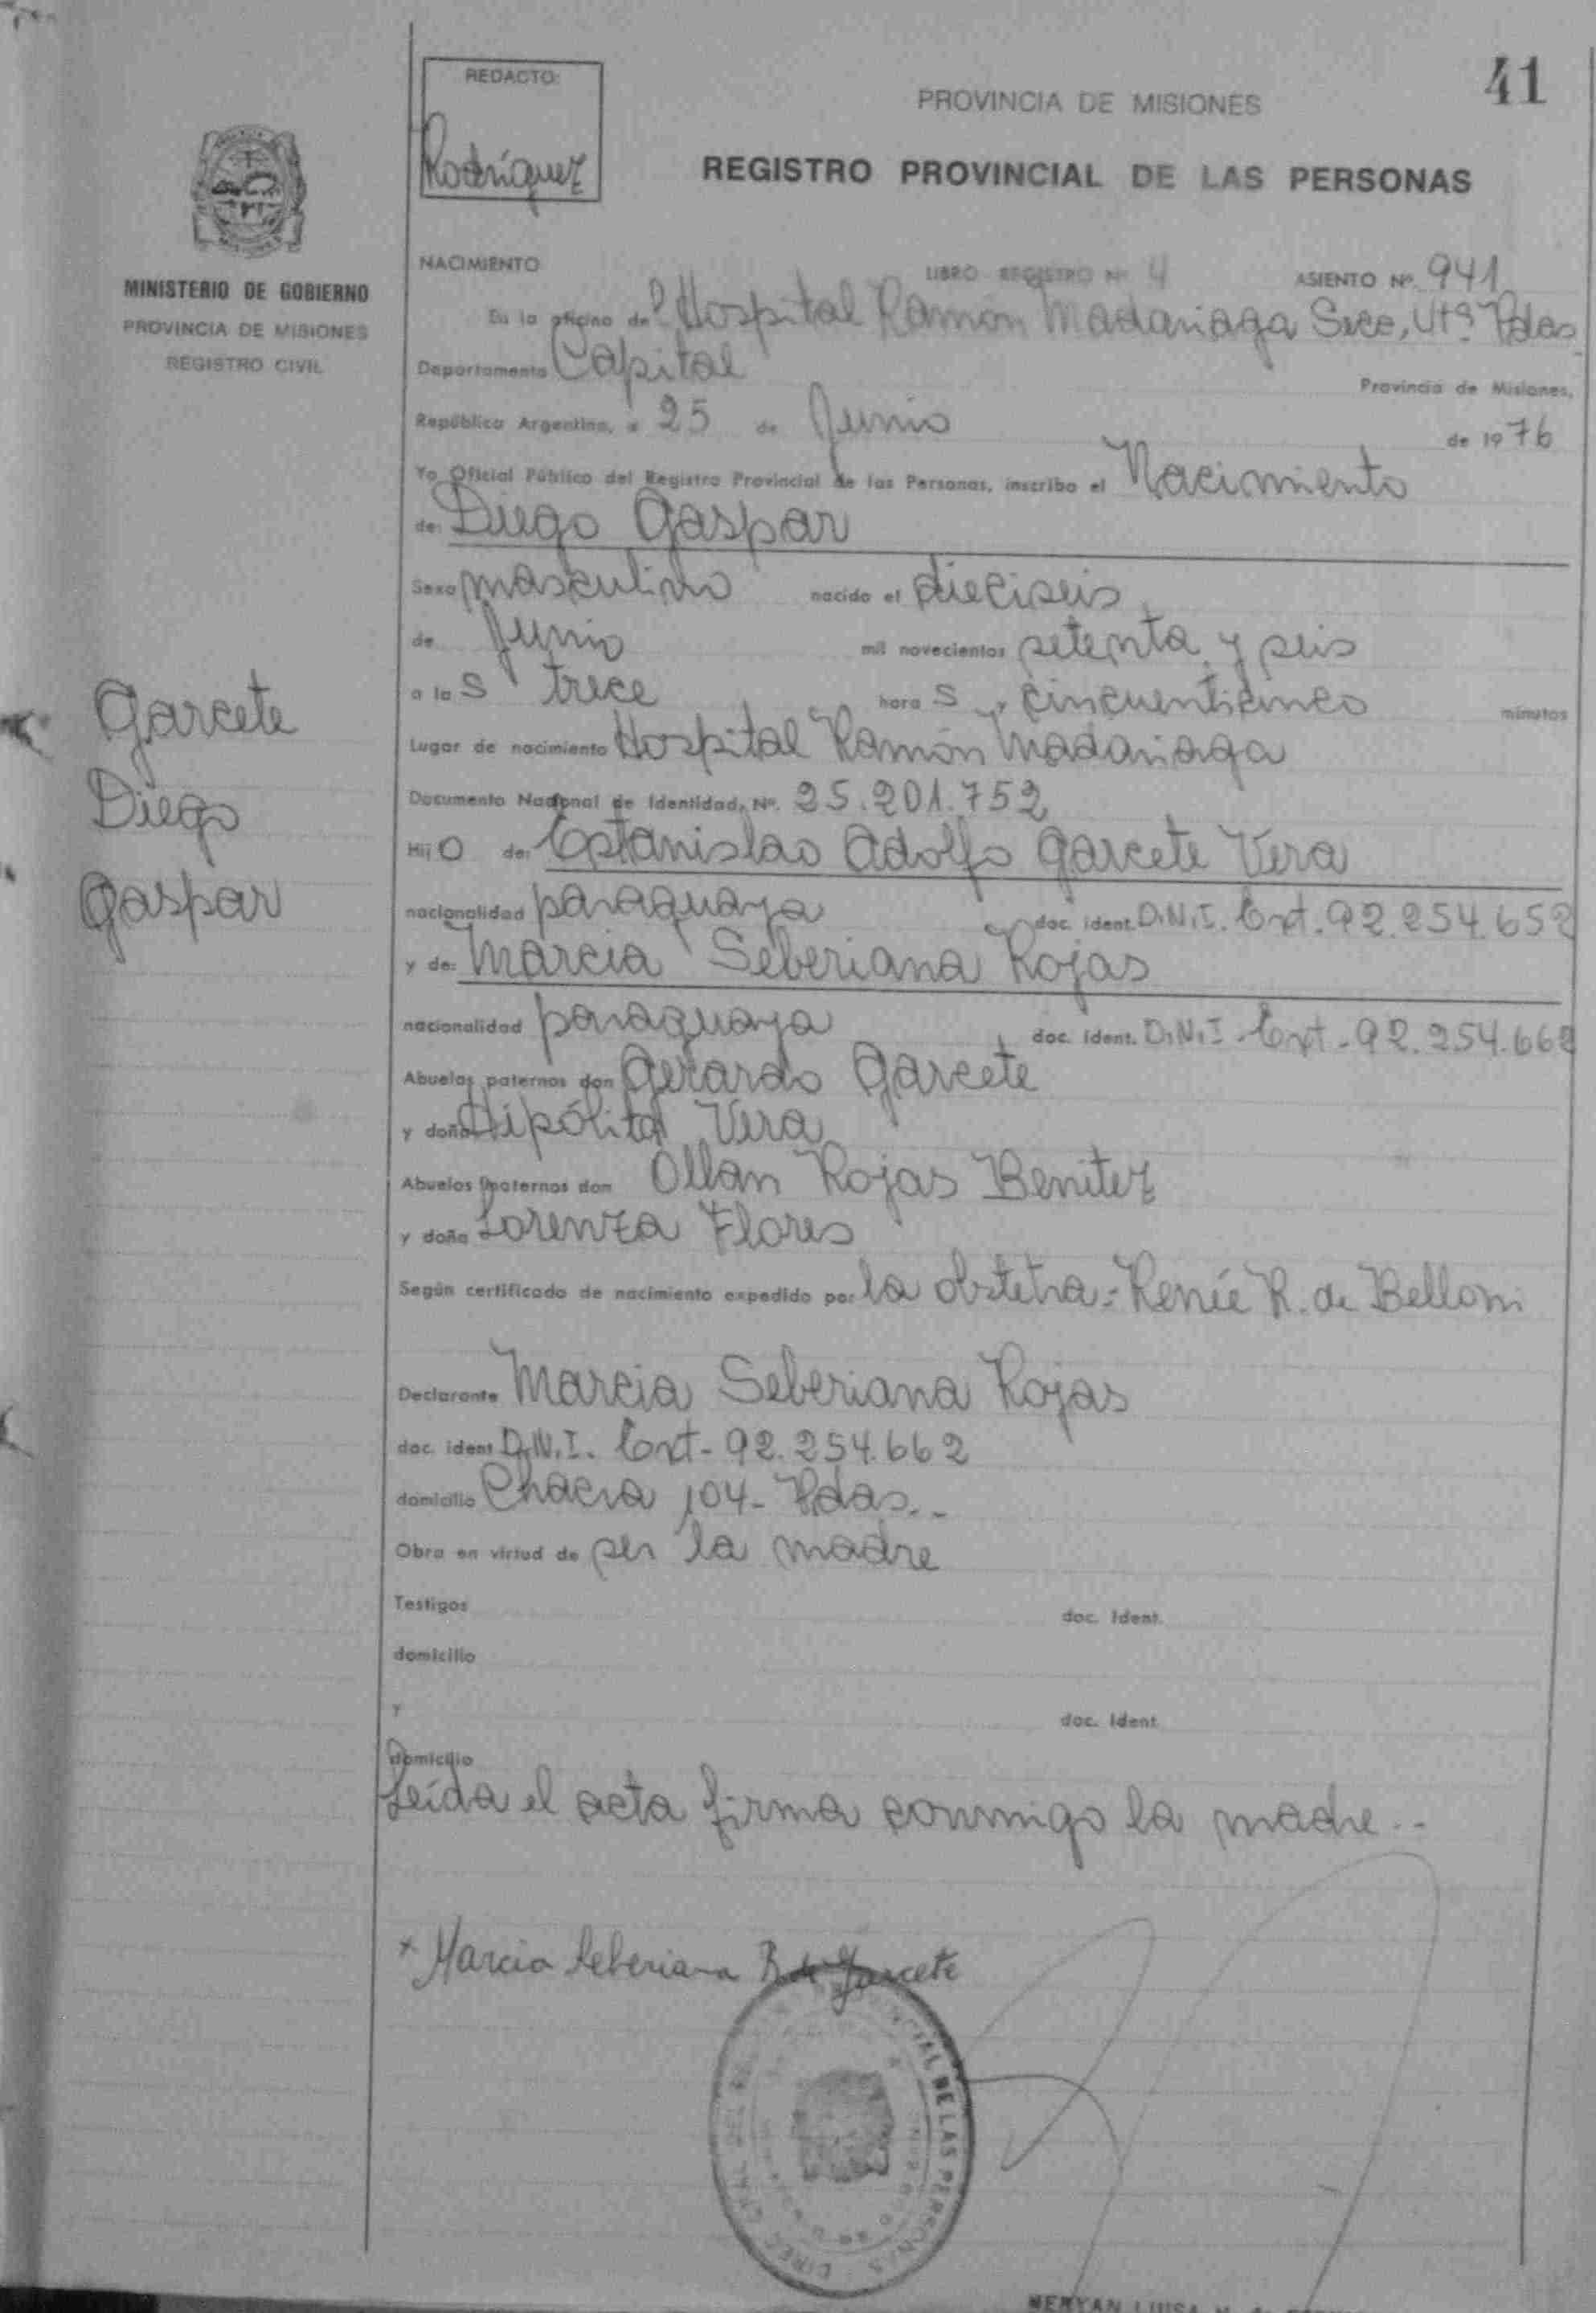 41
REDACTO:
Rodríguez
PROVINCIA DE MISIONES
REGISTRO PROVINCIAL DE LAS PERSONAS
MINISTERIO DE GOBIERNO
PROVINCIA DE MISIONES
REGISTRO CIVIL
NACIMIENTO LIBRO REGISTRO Nº 4 ASIENTO Nº 941
En la oficina del Hospital Ramón Madariaga Secc, Pdas
Departamento Capital Provincia de Misiones,
República Argentina, a 25 de Junio de 1976
Yo Oficial Público del Registro Provincial de las Personas, inscribo el Nacimiento
de: Diego Gaspar
Sexo masculino nacido el dieciseis
de Junio mil novecientos setenta y seis
a las trece horas, cincuenticinco minutos
Lugar de nacimiento Hospital Ramón Madariaga
Documento Nacional de Identidad, Nº. 25.201.752
Hijo de: Estanislao Adolfo Garcete Vera
nacionalidad paraguaya doc. ident. D.N.I. Ext. 92.254.652
y de: Marcia Seberiana Rojas
nacionalidad paraguaya doc. ident. D.N.I. Ext - 92.254.662
Abuelos paternos don Gerardo Garcete
y doña Hipólita Vera
Abuelos maternos don Ollan Rojas Benitez
y doña Lorenza Flores
Según certificado de nacimiento expedido por la obstetra: Renée R. de Belloni
Declarante Marcia Seberiana Rojas
doc. ident D.N.I. Ext - 92.254.662
domicilio Chacra 104 - Pdas. -
Obra en virtud de ser la madre
Testigos doc. Ident.
domicilio
y doc. Ident
domicilio
Leída el acta firma conmigo la madre. -
Garcete
Diego
Gaspar
x Marcia Seberiana R de Garcete
DE LAS PERSONAS
LUISA